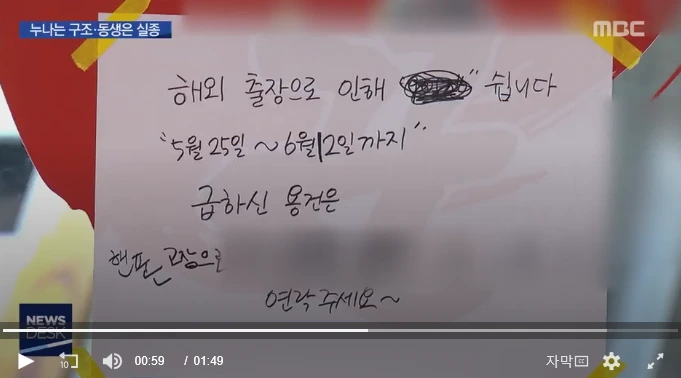 누나는 구조·동생은 실종
MBC
해외 출장으로 인해 쉽니다
"5월 25일 ~ 6월 12일까지"
급하신 용건은
핸폰 고장으로
연락 주세요~
NEWS
DESK
10
00:59 / 01:49
자막